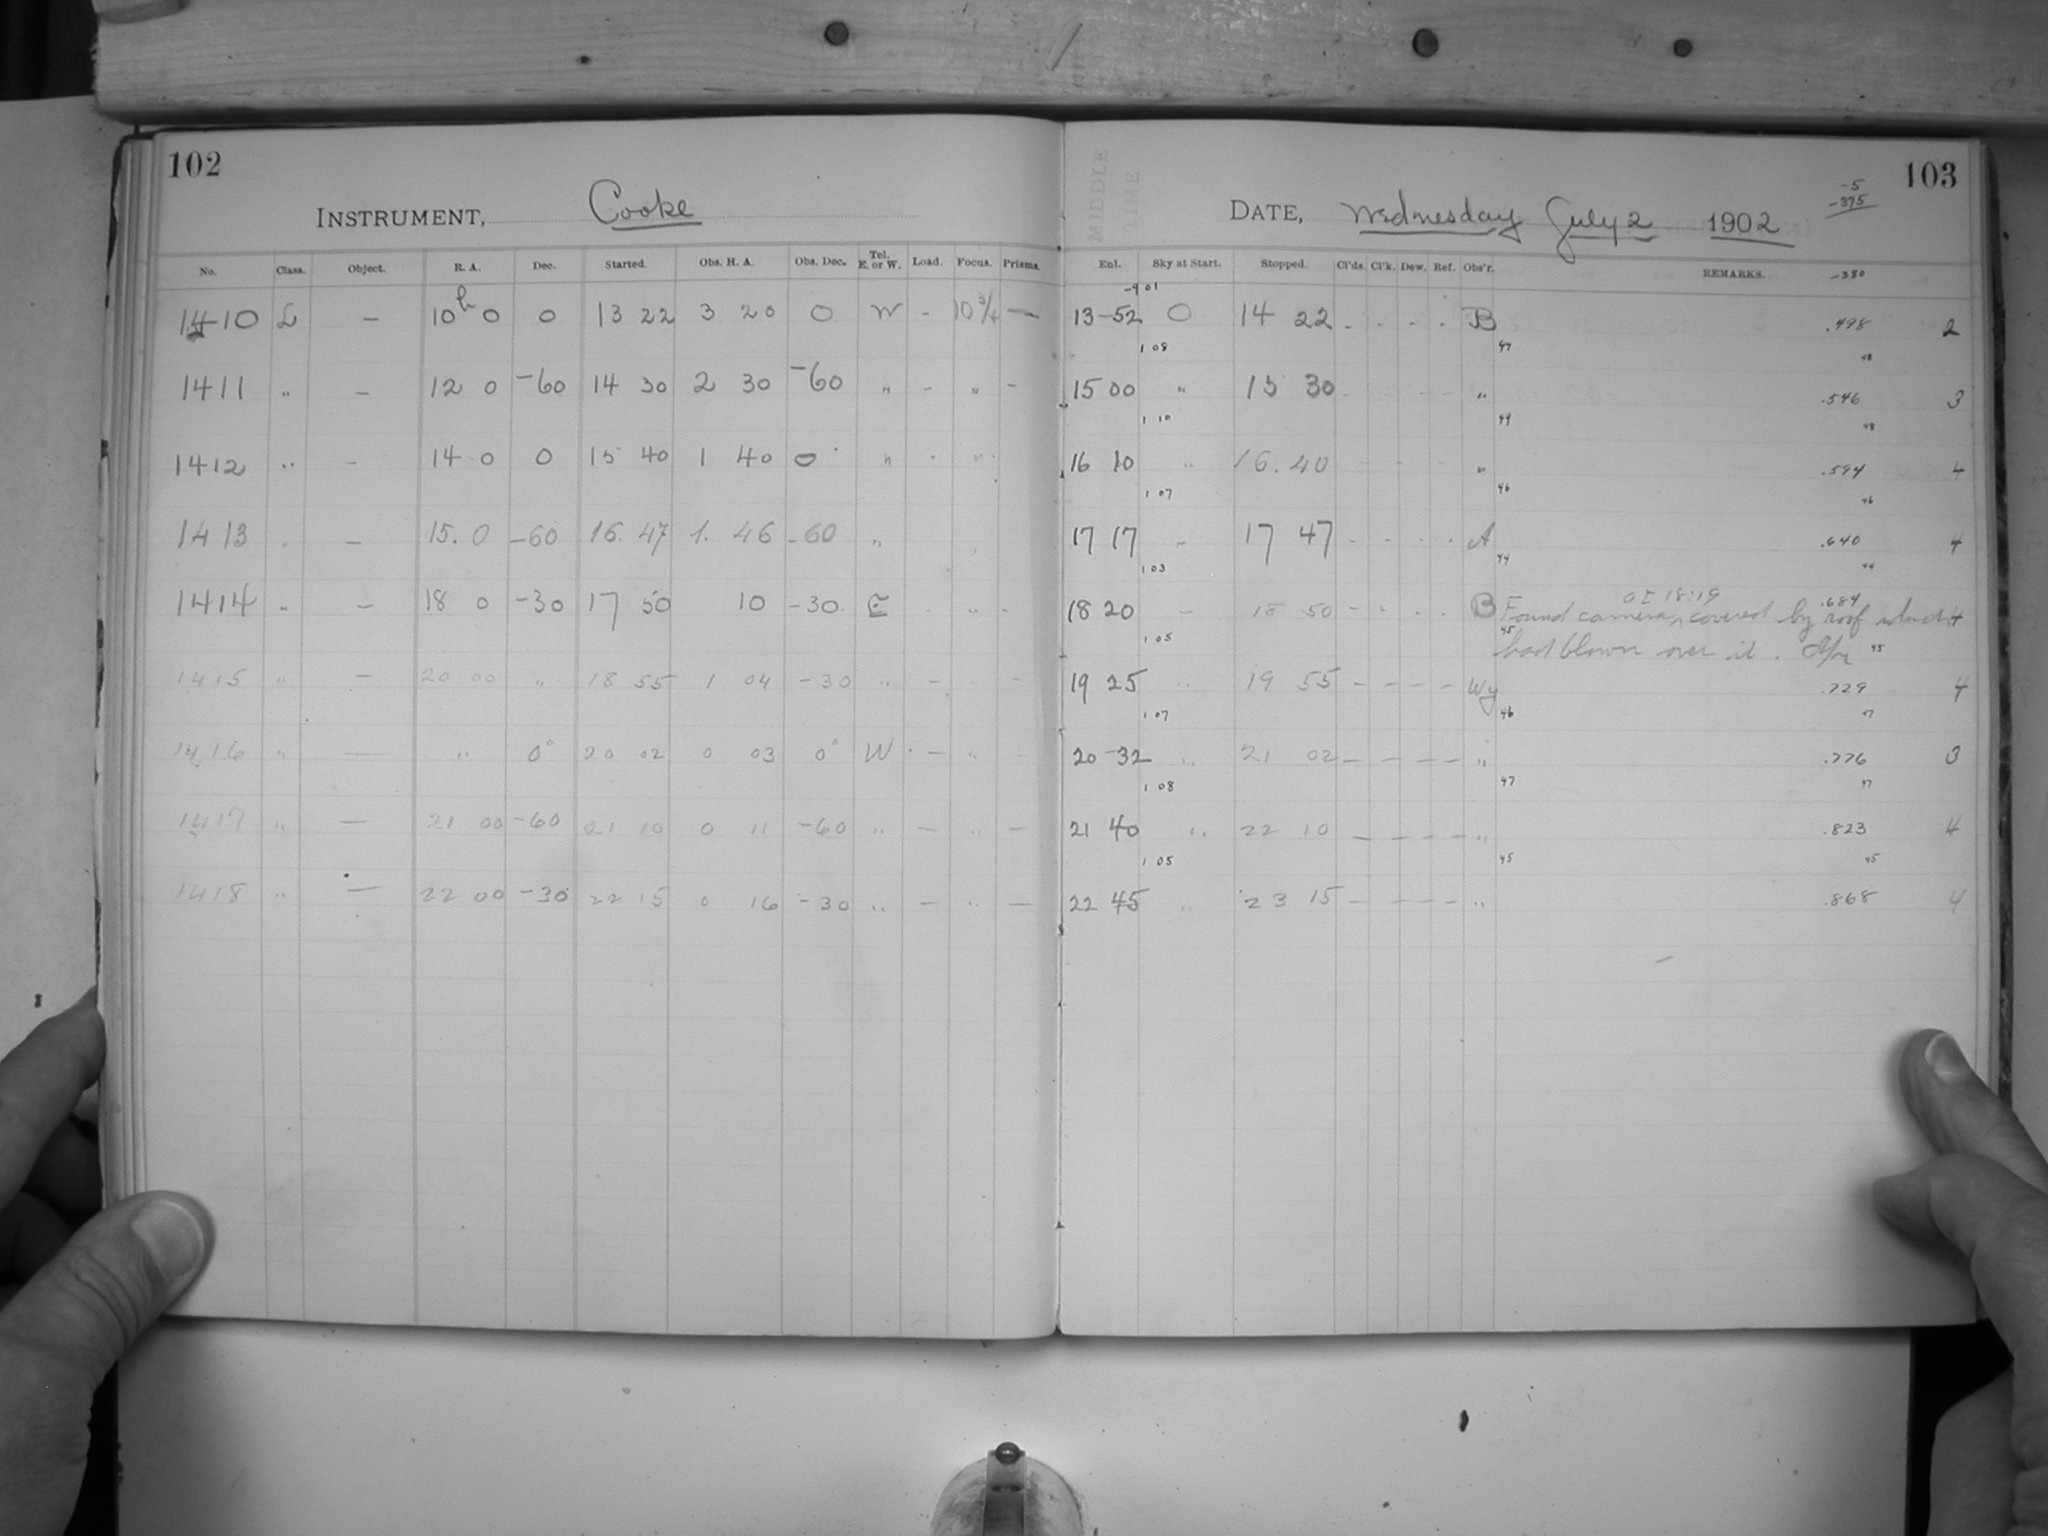 102
INSTRUMENT, Cooke
No. Class. Object. R. A. Dec. Started. Obs. H. A. Obs. Dec. Tel. E. or W. Load. Focus. Prisms.
1410 L — 10h 0 0 13 22 3 20 0 W - 10 3/4 —
1411 " — 12 0 -60 14 30 2 30 -60 " - " -
1412 " - 14 0 0 15 40 1 40 0 " . "
1413 . — 15. 0 -60 16. 47 1. 46 -60 "
1414 " — 18 0 -30 17 50 10 -30. E . " -
1415 " — 20 00 " 18 55 1 04 -30 " - " -
1416 " — " 0° 20 02 0 03 0° W - " -
1417 " — 21 00 -60 21 10 0 11 -60 " - " -
1418 " — 22 00 -30 22 15 0 16 -30 " - " —
103
MIDDLE TIME
-5
-375
DATE, Wednesday July 2 1902
Enl. Sky at Start. Stopped. Cl'ds. Cl'k. Dew. Ref. Obs'r. REMARKS. -380
-9 01
13-52 0 14 22 . . . . B .498 2
1 08 47 48
15 00 " 15 30 - - - - " .546 3
1 10 49 48
16 10 " 16. 40 - - - " .594 4
1 07 46 46
17 17 " 17 47 - . . . A .640 4
1 03 44 44
at 18:19
18 20 - 18 50 - - . . B Found camera, covered by roof which .684 4
1 05 45 had blown over it. 45
19 25 " 19 55 - - - - Wy .729 4
1 07 46 47
20-32 " 21 02 - - - - " .776 3
1 08 47 47
21 40 " 22 10 - - - - " .823 4
1 05 45 45
22 45 " 23 15 - - - - " .868 4